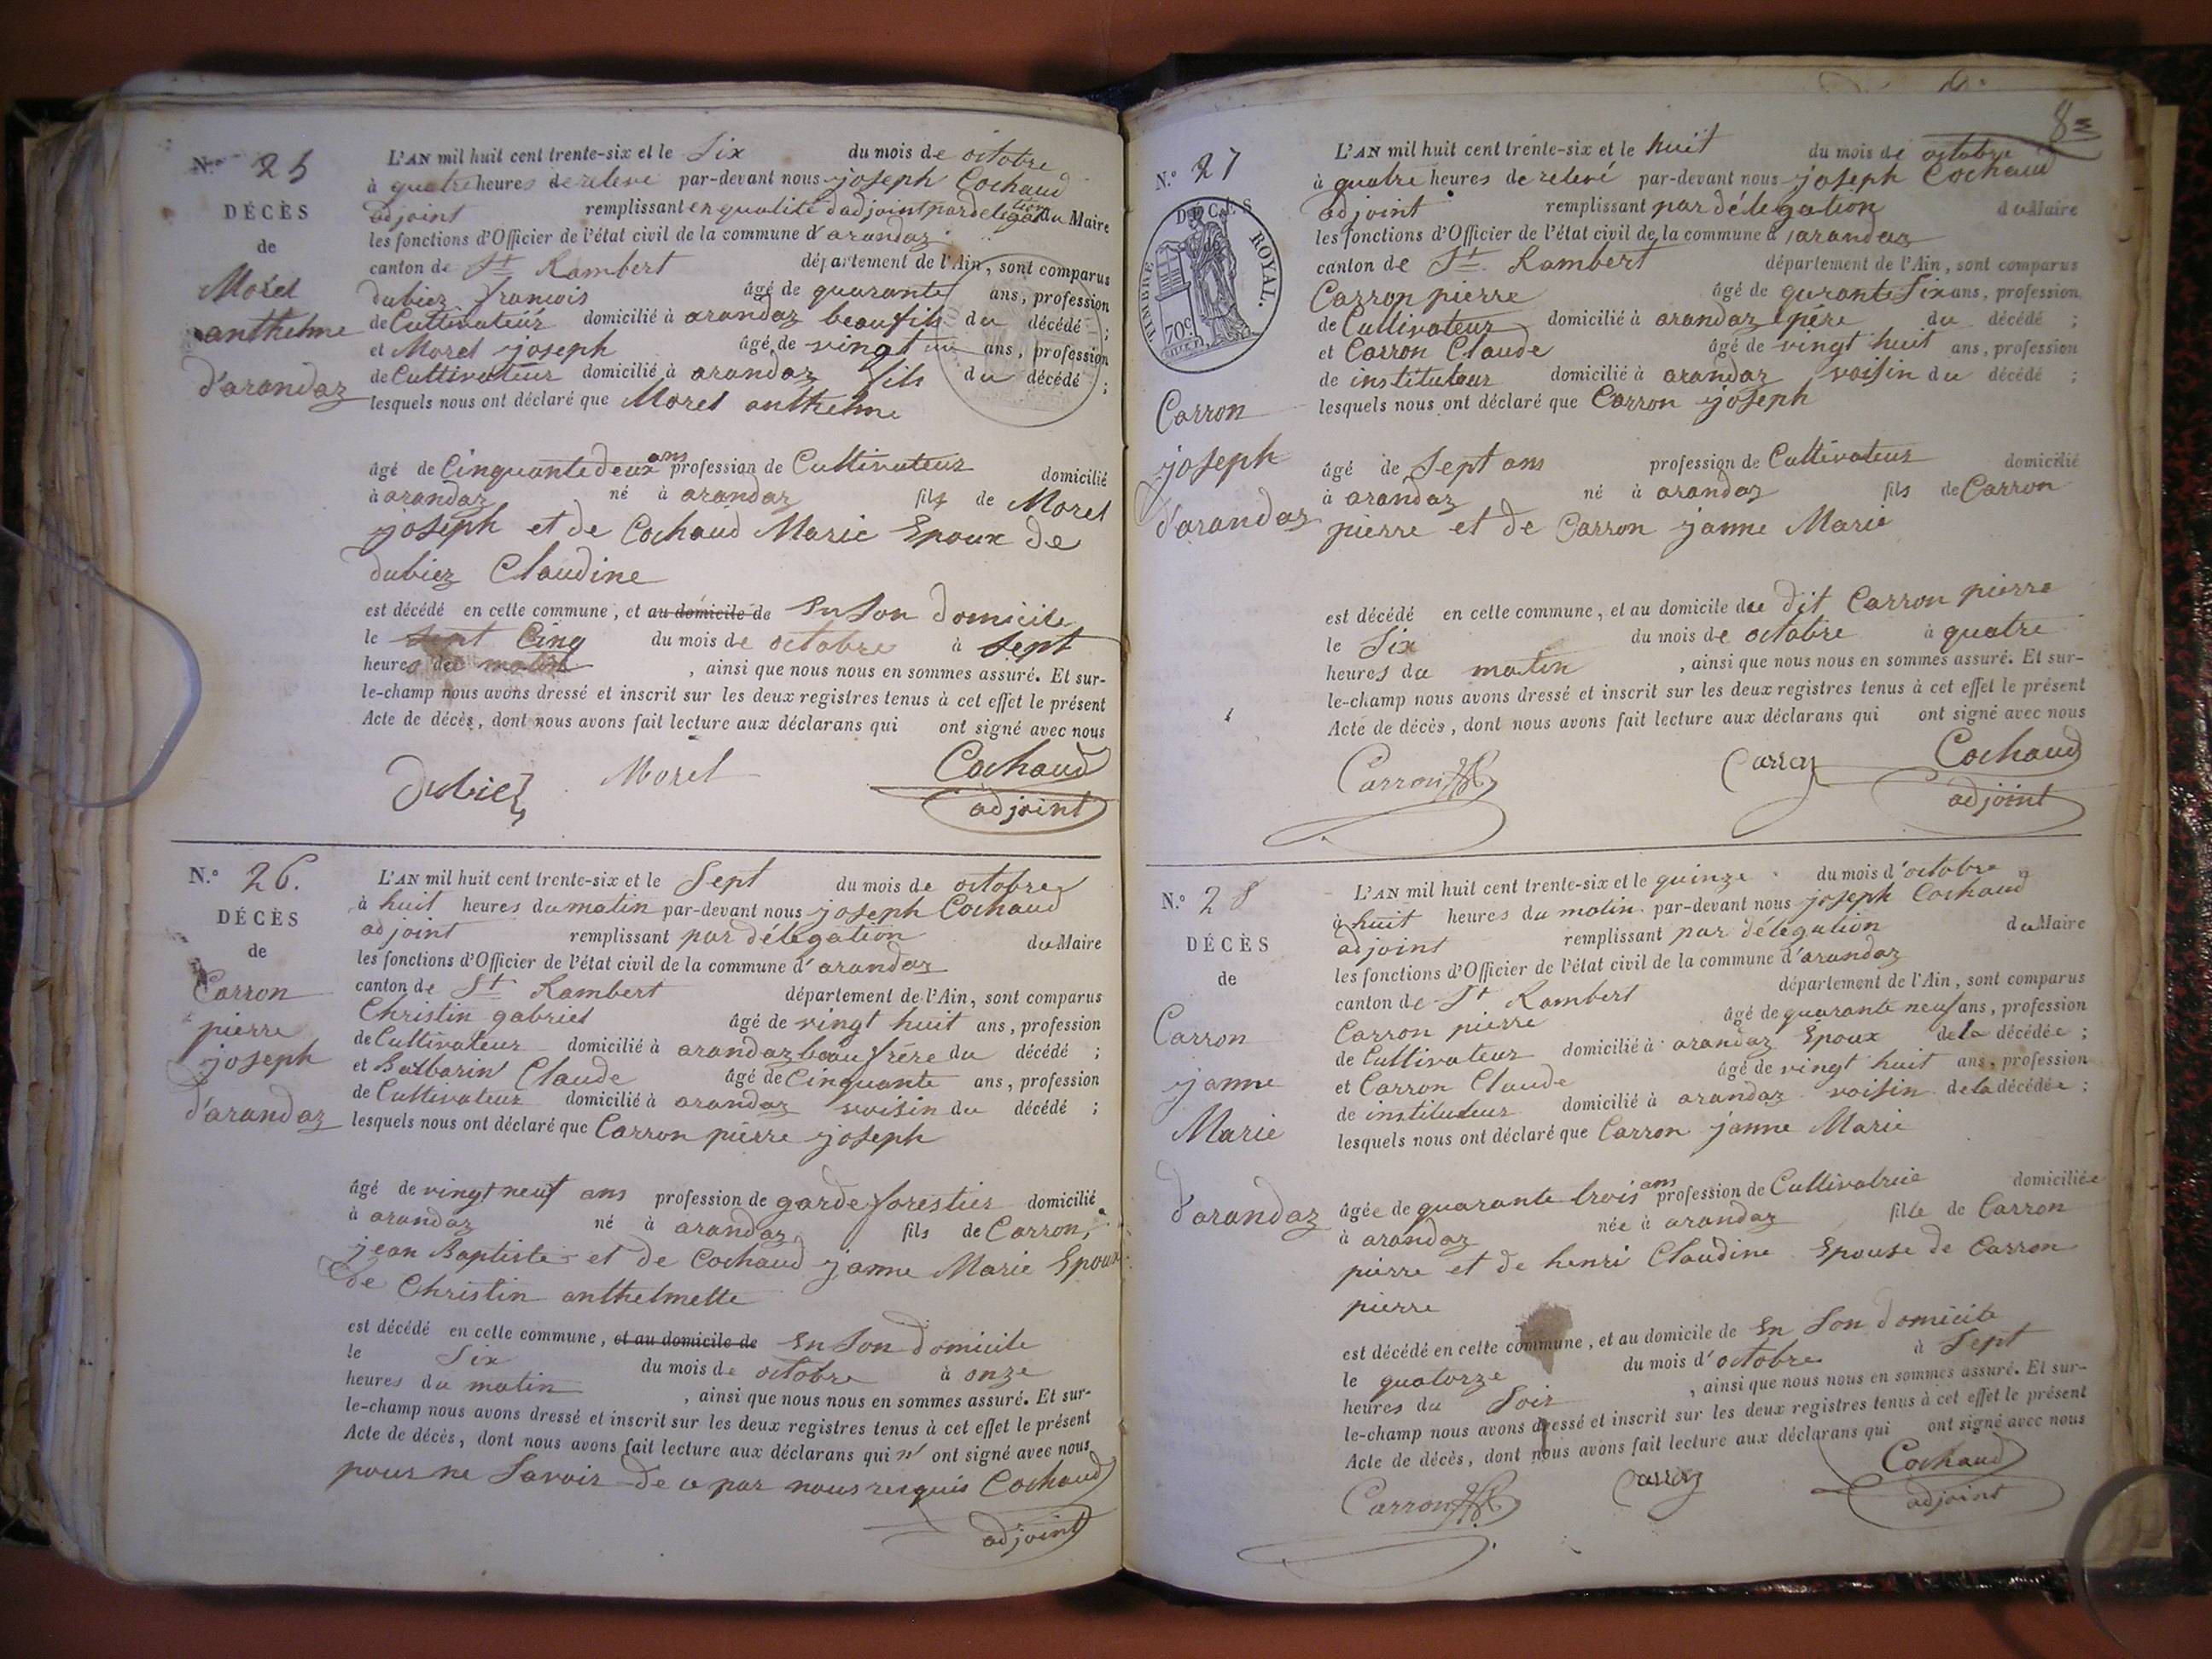 N.º 25
DÉCÈS
de
Morel
anthelme
d'arandaz
L'AN mil huit cent trente-six et le Six du mois de octobre
à quatre heures de relevé par-devant nous joseph Cochaud
adjoint remplissant en qualité d'adjoint par délégation du Maire
les fonctions d'Officier de l'état civil de la commune d'arandaz
canton de St Rambert département de l'Ain, sont comparus
dubiez francois âgé de quarante ans, profession
de Cultivateur domicilié à arandaz beaufils du décédé ;
et Morel joseph âgé de vingt un ans, profession
de Cultivateur domicilié à arandaz fils du décédé ;
lesquels nous ont déclaré que Morel anthelme
âgé de Cinquante deux ans profession de Cultivateur domicilié
à arandaz né à arandaz fils de Morel
joseph et de Cochaud Marie Epoux de
dubiez Claudine
est décédé en cette commune, et au domicile de En Son domicile
le sept Cinq du mois de octobre à Sept
heures du matin , ainsi que nous nous en sommes assuré. Et sur-
le-champ nous avons dressé et inscrit sur les deux registres tenus à cet effet le présent
Acte de décès, dont nous avons fait lecture aux déclarans qui ont signé avec nous
Dubiez Morel Cochaud
adjoint
N.º 26.
DÉCÈS
de
Carron
pierre
joseph
d'arandaz
L'AN mil huit cent trente-six et le Sept du mois de octobre
à huit heures du matin par-devant nous joseph Cochaud
adjoint remplissant par délégation du Maire
les fonctions d'Officier de l'état civil de la commune d'arandaz
canton de St Rambert département de l'Ain, sont comparus
Christin gabriel âgé de vingt huit ans, profession
de Cultivateur domicilié à arandaz beau frère du décédé ;
et Balbarin Claude âgé de Cinquante ans, profession
de Cultivateur domicilié à arandaz voisin du décédé ;
lesquels nous ont déclaré que Carron pierre joseph
âgé de vingt neuf ans profession de garde forestier domicilié
à arandaz né à arandaz fils de Carron,
jean Baptiste et de Cochaud janne Marie Epoux
de Christin anthelmette
est décédé en cette commune, et au domicile de En Son domicile
le Six du mois de octobre à onze
heures du matin , ainsi que nous nous en sommes assuré. Et sur-
le-champ nous avons dressé et inscrit sur les deux registres tenus à cet effet le présent
Acte de décès, dont nous avons fait lecture aux déclarans qui n' ont signé avec nous
pour ne Savoir de ce par nous requis Cochaud
adjoint
8
N.º 27
DÉCÈS
de
TIMBRE ROYAL.
70c
Carron
joseph
d'arandaz
L'AN mil huit cent trente-six et le huit du mois de octobre
à quatre heures de relevé par-devant nous joseph Cochaud
adjoint remplissant par délégation du Maire
les fonctions d'Officier de l'état civil de la commune d'arandaz
canton de St Rambert département de l'Ain, sont comparus
Carron pierre âgé de qurante Six ans, profession
de Cultivateur domicilié à arandaz père du décédé ;
et Carron Claude âgé de vingt huit ans, profession
de instituteur domicilié à arandaz voisin du décédé ;
lesquels nous ont déclaré que Carron joseph
âgé de Sept ans profession de Cultivateur domicilié
à arandaz né à arandaz fils de Carron
pierre et de Carron janne Marie
est décédé en cette commune, et au domicile du dit Carron pierre
le Six du mois de octobre à quatre
heures du matin , ainsi que nous nous en sommes assuré. Et sur-
le-champ nous avons dressé et inscrit sur les deux registres tenus à cet effet le présent
Acte de décès, dont nous avons fait lecture aux déclarans qui ont signé avec nous
Carron Carron Cochaud
adjoint
N.º 28
DÉCÈS
de
Carron
janne
Marie
d'arandaz
L'AN mil huit cent trente-six et le quinze du mois d'octobre
à huit heures du matin par-devant nous joseph Cochaud
adjoint remplissant par délégation du Maire
les fonctions d'Officier de l'état civil de la commune d'arandaz
canton de St Rambert département de l'Ain, sont comparus
Carron pierre âgé de quarante neuf ans, profession
de Cultivateur domicilié à arandaz Epoux de la décédée ;
et Carron Claude âgé de vingt huit ans, profession
de instituteur domicilié à arandaz voisin de la décédée ;
lesquels nous ont déclaré que Carron janne Marie
âgée de quarante trois ans profession de Cultivatrice domiciliée
à arandaz née à arandaz fille de Carron
pierre et de henri Claudine Epouse de Carron
pierre
est décédé en cette commune, et au domicile de En Son domicile
le quatorze du mois d'octobre à Sept
heures du Soir , ainsi que nous nous en sommes assuré. Et sur-
le-champ nous avons dressé et inscrit sur les deux registres tenus à cet effet le présent
Acte de décès, dont nous avons fait lecture aux déclarans qui ont signé avec nous
Carron Carron Cochaud
adjoint